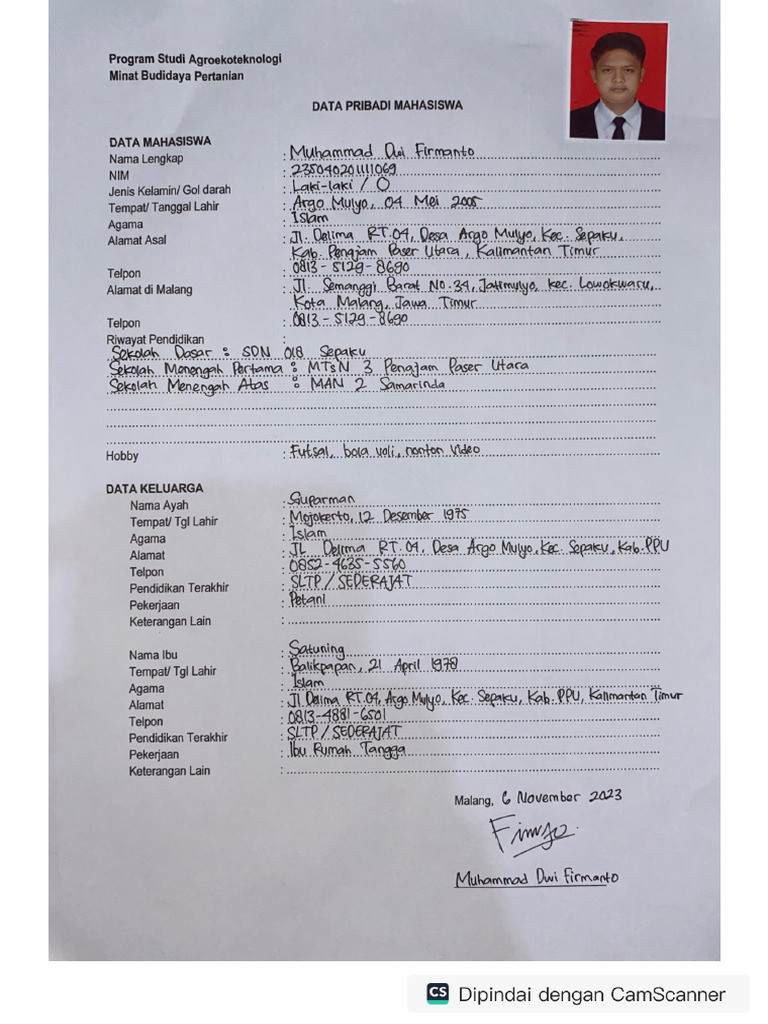 Program Studi Agroekoteknologi
Minat Budidaya Pertanian
DATA PRIBADI MAHASISWA
DATA MAHASISWA
Nama Lengkap : Muhammad Dwi Firmanto
NIM : 235040201111069
Jenis Kelamin/ Gol darah : Laki-laki / O
Tempat/ Tanggal Lahir : Argo Mulyo, 04 Mei 2005
Agama : Islam
Alamat Asal : Jl. Delima RT.04, Desa Argo Mulyo, Kec. Sepaku,
Kab. Penajam Paser Utara, Kalimantan Timur
Telpon : 0813-5129-8690
Alamat di Malang : Jl. Semanggi Barat No.34, Jatimulyo, kec. Lowokwaru,
Kota Malang, Jawa Timur
Telpon : 0813-5129-8690
Riwayat Pendidikan :
Sekolah Dasar : SDN 018 Sepaku
Sekolah Menengah Pertama : MTsN 3 Penajam Paser Utara
Sekolah Menengah Atas : MAN 2 Samarinda
Hobby : Futsal, bola voli, nonton video
DATA KELUARGA
Nama Ayah : Suparman
Tempat/ Tgl Lahir : Mojokerto, 12 Desember 1975
Agama : Islam
Alamat : JL Delima RT.04, Desa Argo Mulyo, Kec. Sepaku, Kab. PPU
Telpon : 0852-4635-5560
Pendidikan Terakhir : SLTP / SEDERAJAT
Pekerjaan : Petani
Keterangan Lain :
Nama Ibu : Satuning
Tempat/ Tgl Lahir : Balikpapan, 21 April 1978
Agama : Islam
Alamat : Jl. Delima RT.04, Argo Mulyo, Kec. Sepaku, Kab. PPU, Kalimantan Timur
Telpon : 0813-4881-6501
Pendidikan Terakhir : SLTP / SEDERAJAT
Pekerjaan : Ibu Rumah Tangga
Keterangan Lain :
Malang, 6 November 2023
Muhammad Dwi Firmanto
CS Dipindai dengan CamScanner